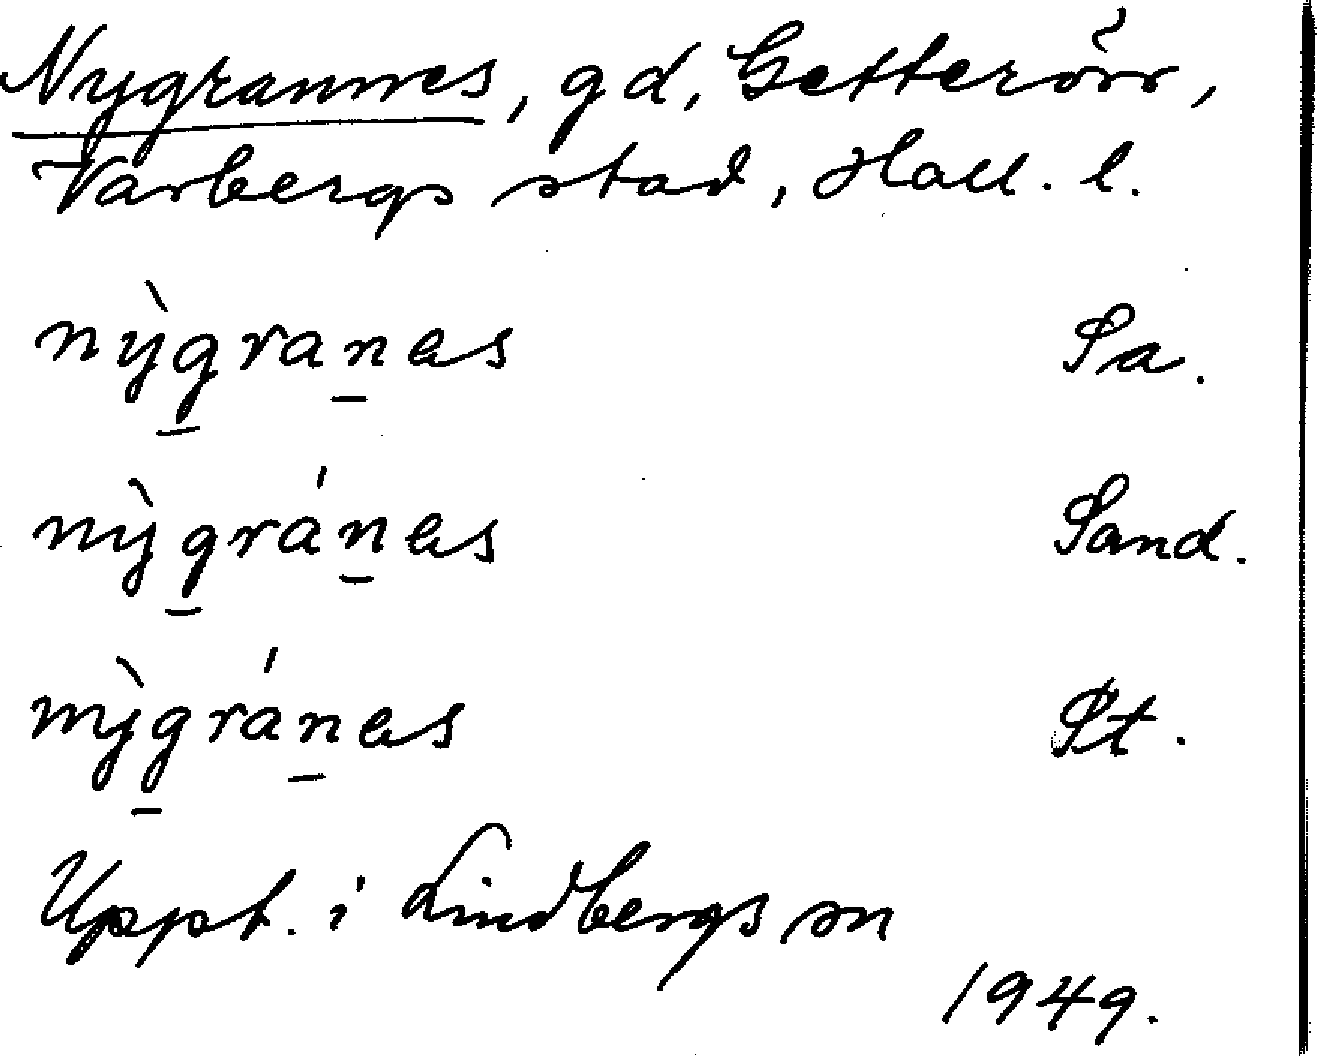 Nygrannes, gd, Getterön,
Varbergs stad, Hall. l.
nỳgranas Sa.
nỳgránas Sand.
nỳgránas St.
Uppt. i Lindbergs sn
1949.